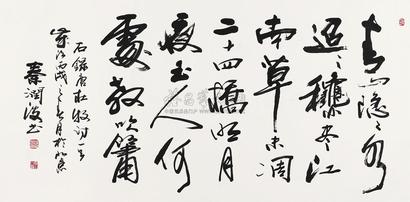 青山隱〻水
迢〻穐盡江
南草未凋
二十四橋明月
夜玉人何
處教吹簫
右錄唐杜牧詩一首
歲次丙戌之月於北京
秦潤波书